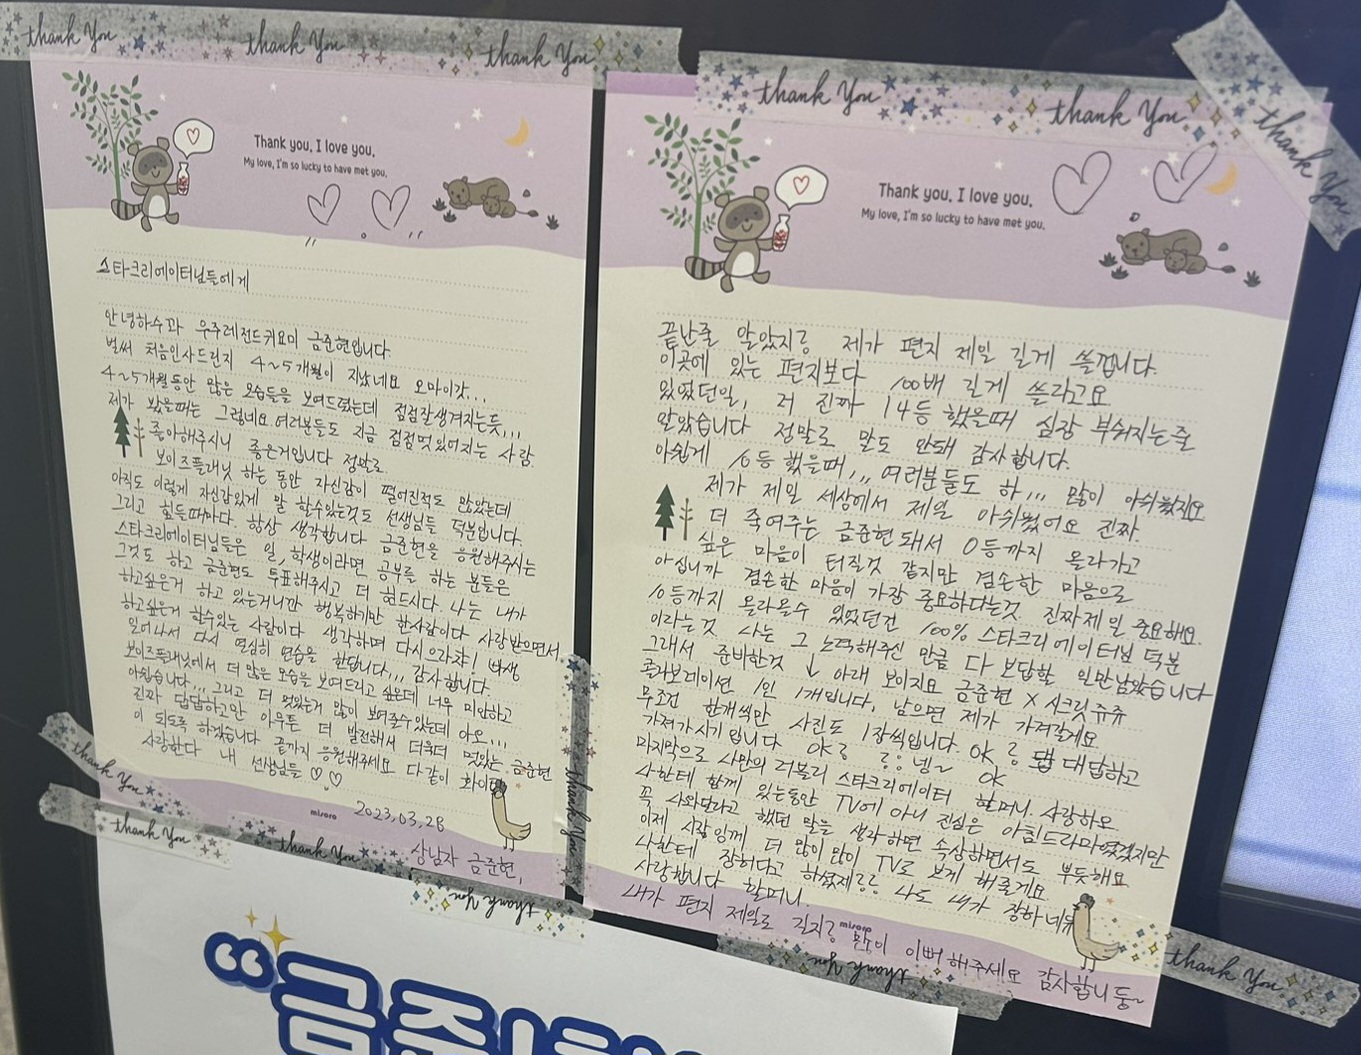 thank You
thank You
thank You
Thank you, I love you.
My love, I'm so lucky to have met you.
스타크리에이터님들에게
안녕하수과 우주레전드귀요미 금준현입니다
벌써 처음인사드린지 4~5개월이 지났네요 오마이갓...
4~5개월동안 많은 모습들을 보여드렸는데 점점잘생겨지는듯...
제가 봤을때는 그렇네요 여러분들도 지금 점점멋있어지는 사람.
좋아해주시니 좋은거입니다 정말로
보이즈플래닛 하는 동안 자신감이 떨어진적도 많았는데
아직도 이렇게 자신감있게 말 할수있는것도 선생님들 덕분입니다.
그리고 힘들때마다 항상 생각합니다 금준현을 응원해주시는
스타크리에이터님들은 일, 학생이라면 공부를 하는 분들은
그것도 하고 금준현도 투표해주시고 더 힘드시다. 나는 내가
하고싶은거 하고 있는거니깐 행복하기만 한사람이다 사랑받으면서
하고싶은거 할수있는 사람이다 생각하며 다시으라챠! 빠샤
일어나서 다시 열심히 연습을 한답니다,,, 감사합니다.
보이즈플래닛에서 더 많은 모습을 보여드리고 싶은데 너무 미안하고
아쉽습니다... 그리고 더 멋있는거 많이 보여줄수있는데 아오...
진짜 답답하고만 아무튼 더 발전해서 더욱더 멋있는 금준현
이 되도록 하겠습니다 끝까지 응원해주세요 다같이 화이팅
사랑한다 내 선생님들 ♡♡
misoro
2023.03.28
상남자 금준현,
thank You
thank You
thank You
thank You
thank You
thank You
thank You
thank You
Thank you, I love you.
My love, I'm so lucky to have met you.
끝난줄 알았지? 제가 편지 제일 길게 쓸껍니다.
이곳에 있는 편지보다 100배 길게 쓸라고요
있었던일, 저 진짜 14등 했을때 심장 부숴지는줄
알았습니다 정말로 말도 안돼 감사합니다.
아쉽게 10등 했을때,,, 여러분들도 하,,, 많이 아쉬웠지요
제가 제일 세상에서 제일 아쉬웠어요 진짜.
더 죽여주는 금준현돼서 0등까지 올라가고
싶은 마음이 터질것 같지만 겸손한 마음으로
아십니까 겸손한 마음이 가장 중요하다는것 진짜제일 중요해요
10등까지 올라올수 있었던건 100% 스타크리에이터님 덕분
이라는것 나는 그 노력해주신 만큼 다 보답할 일만남았습니다
그래서 준비한것 ↓ 아래 보이지요 금준현 X 시크릿쥬쥬
콜라보레이션 1인 1개입니다, 남으면 제가 가져갈게요
무조건 한개씩만 사진도 1장씩입니다. OK? 답 대답하고
가져가시기 입니다 OK? ?: 넹~ OK
마지막으로 나만의 러블리 스타크리에이터 할머니 사랑하오
나한테 함께 있는동안 TV에 아니 진심은 아침드라마였겠지만
꼭 나와달라고 했던 말들 생각하면 속상하면서도 뿌듯해요
이제 시작임께 더 많이많이 TV로 보게 해줄게요
나한테 장허다고 하셨제?? 나도 내가 장하네유
사랑합니다 할머니.
내가 편지 제일로 길지? 많이 이뻐해주세요 감사합니둥~
misoro
thank You
thank You
“금준현